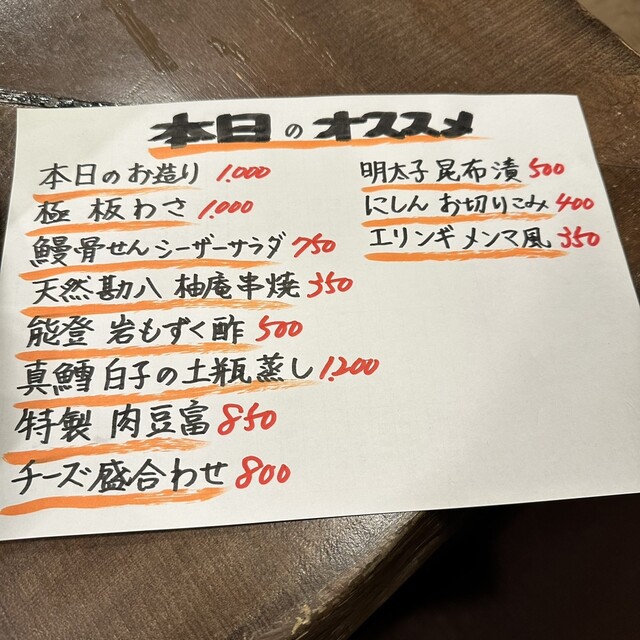 本日のオススメ
本日のお造り 1,000
極 板わさ 1,000
鰻骨せんシーザーサラダ 750
天然勘八 柚庵串焼 350
能登 岩もずく酢 500
真鱈白子の土瓶蒸し 1,200
特製 肉豆富 850
チーズ盛合わせ 800
明太子昆布漬 500
にしん お切りこみ 400
エリンギメンマ風 350